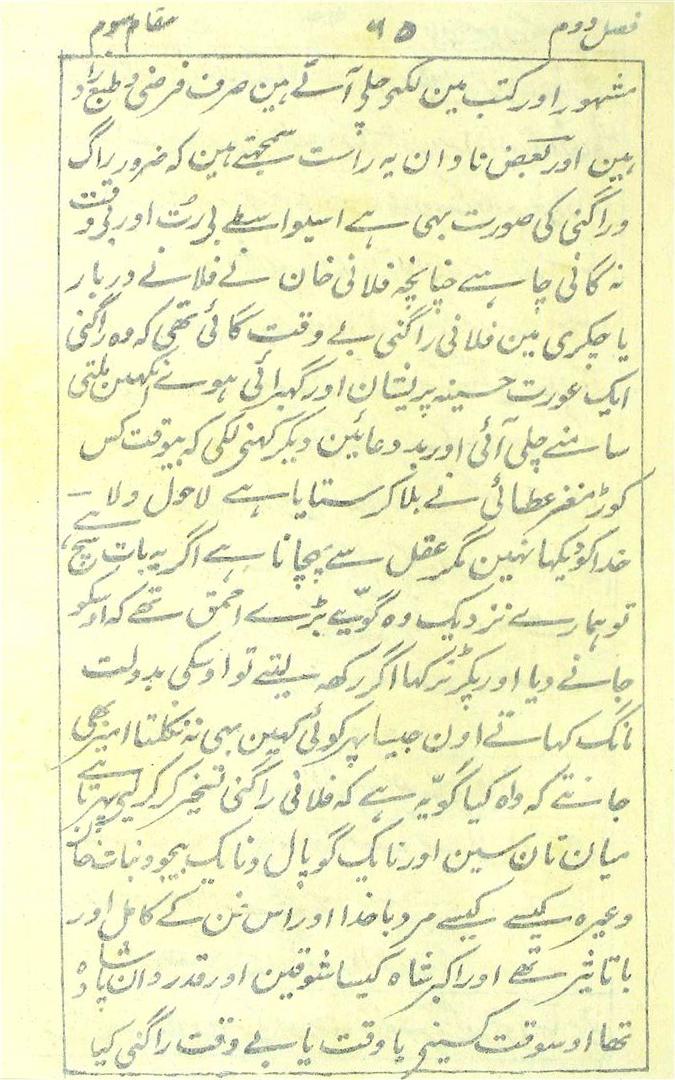 فصل دوم ٩٥ مقام سوم
مشہور اور کتب مین لکہی چلی آتے ہین صرف فرضی و طبع زاد
ہین اور بعض نادان یہ راست سمجہتے ہین کہ ضرور راگ
و راگنی کی صورت بہی ہے اسیواسطے بی رُت اور بی وقت
نہ گانی چاہیے چنانچہ فلانی خان نے فلانے دربار
یا چکری مین فلانی راگنی بے وقت گائی تھی کہ وہ راگنی
ایک عورت حسینہ پریشان اور گہبرائی ہوئے انکہین ملتی
سامنے چلی آئی اور بد دعائین دیکر کہنی لگی کہ بیوقت کس
کوڑ مغز عطائی نے بلا کر ستایا ہے لاحول ولا
خدا کو دیکہا نہین مگر عقل سے پہچانا ہے اگر یہ بات سچ ہے
تو ہمارے نزدیک وہ گویّے بڑے احمق تھے کہ اوسکو
جانے دیا اور پکڑ نرکہا اگر رکھہ لیتے تو اوسکی بدولت
مانگ کہاتے اون جیسا پہر کوئی کہین بہی نہ نکلتا امیر بھی
جانتے کہ واہ کیا گویّہ ہے کہ فلانی راگنی تسخیر کر کر لیے پہرتا ہے
میان تان سین اور نایک گوپال و نایک بیجو و نبات خان
وغیرہ کیسے کیسے مرد باخدا اور اس فن کے کامل اور
باتاثیر تھے اور اکبر شاہ کیسا شوقین اور قدردان پادشاہ
تھا اوسوقت کسینی باوقت یا بے وقت راگنی کیا